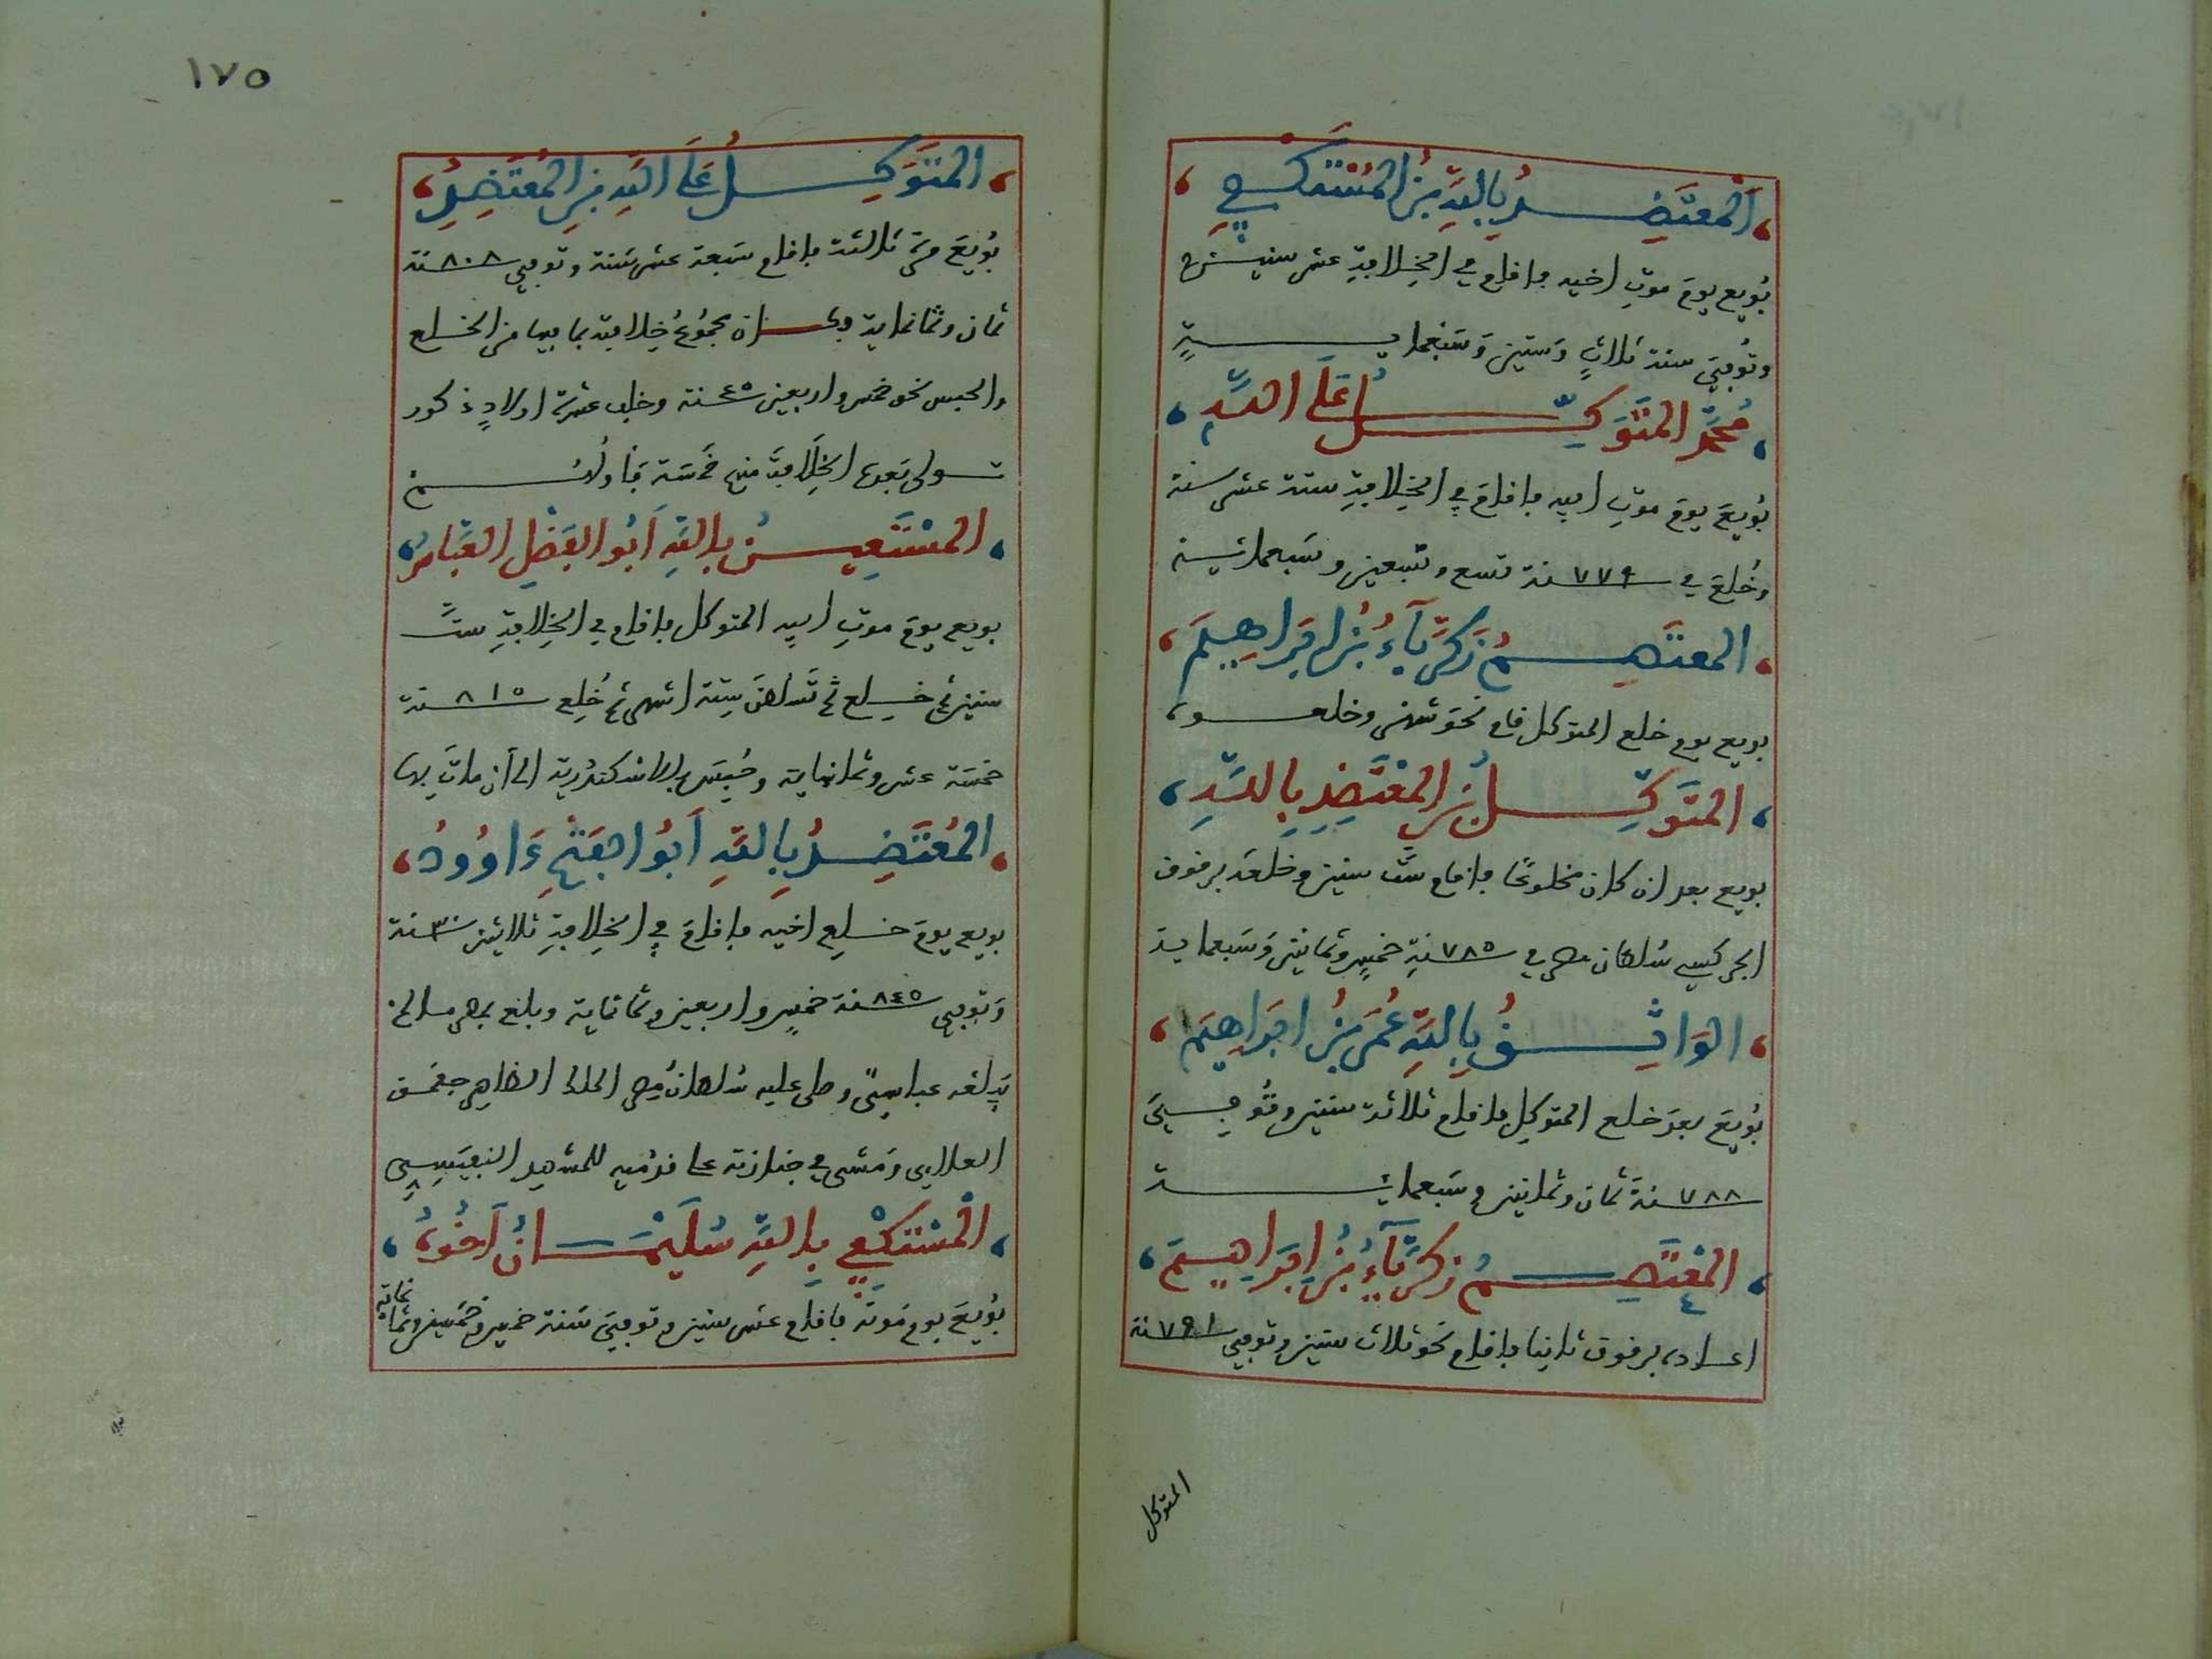 المعتضد بالله بن المستكفي
بويع يوم موت اخيه فاقام في الخلافة عشر سنين
وتوفي سنة ثلاث وستين وسبعماية
محمد المتوكل على الله
بويع يوم موت ابيه فاقام في الخلافة ستة عشر سنة
وخلع في ٧٧٩ سنة تسع وسبعين وسبعمائة
المعتصم زكرياء بن ابراهيم
بويع يوم خلع المتوكل فاقام نحو شهر وخلعوه
المتوكل بن المعتضد بالله
بويع بعد ان كان مخلوعا فاقام ست سنين وخلعه برقوق
الجركسي سلطان مصر في ٧٨٥ سنة خمس وثمانين وسبعماية
الواثق بالله عمر بن ابراهيم
بويع بعد خلع المتوكل فاقام ثلاثة سنين وتوفي
٧٨٨ سنة ثمان وثمانين وسبعمائة
المعتصم زكرياء بن ابراهيم
اعاده برقوق ثانيا فاقام نحو ثلاث سنين وتوفي ٧٩١ سنة
المتوكل
١٧٥
المتوكل على الله بن المعتضد
بويع مرة ثالثة فاقام سبعة عشر سنة وتوفي ٨٠٨ سنة
ثمان وثمانماية وكان مجموع خلافته بما فيها من الخلع
والحبس نحو خمس واربعين ٤٥ سنة وخلف عشرة اولاد ذكور
تولى بعده الخلافة منهم خمسة فاولهم
المستعين بالله أبو الفضل العباس
بويع يوم موت ابيه المتوكل فاقام في الخلافة ست
سنين ثم خلع ثم تسلطن ستة اشهر ثم خلع ٨١٥ سنة
خمسة عشر وثمانماية وحبس بالاسكندرية الى أن مات بها
المعتضد بالله أبو الفتح داوود
بويع يوم خلع اخيه فاقام في الخلافة ثلاثين ٣٠ سنة
وتوفي ٨٤٥ سنة خمس واربعين وثمانماية وبلغ بمصر ما لم
يبلغه عباسي وصلى عليه سلطان مصر الملك الظاهر جقمق
العلايي ومشى في جنازته على قدميه للمشهد النفيسي
المستكفي بالله سليمان أخوه
بويع يوم موته فاقام عشر سنين وتوفي سنة خمس وخمسين وثمانماية